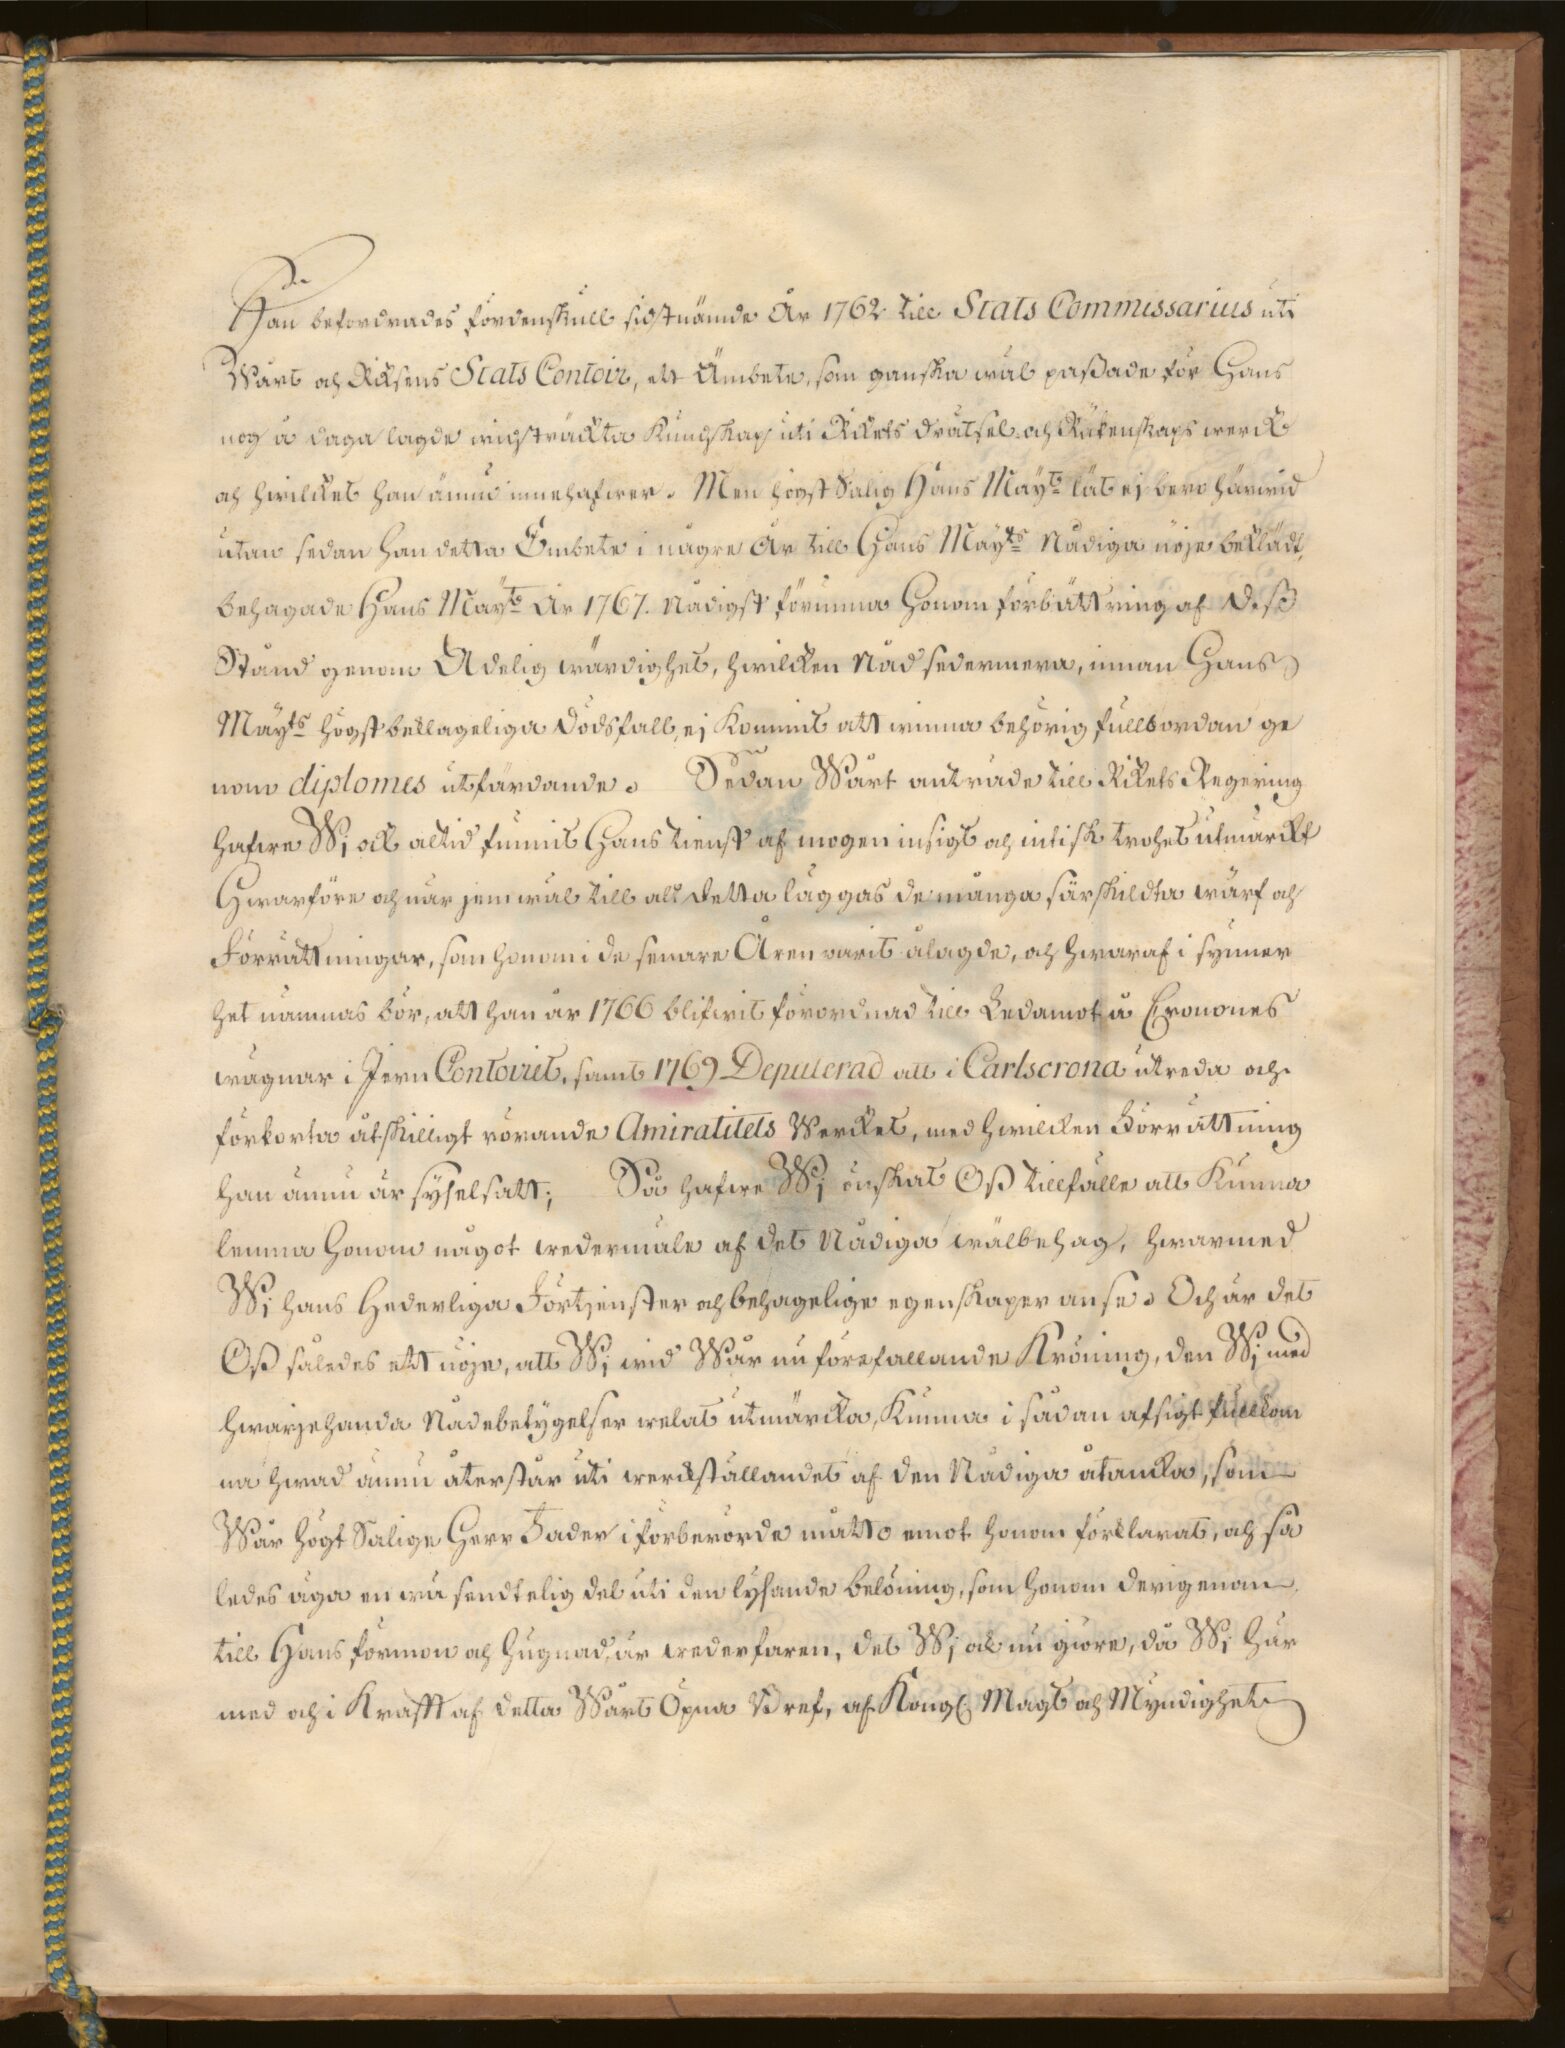 Han befordrades fördenskull sidstnämde År 1762 till Stats Commissarius uti
Wårt och Riksens Stats Contoir, ett Ämbete, som ganska wäl paßade för Hans
nog å daga lagde widsträckta Kundskap uti Rikets drätsel och Räkenskaps werck
och hwilcket han ännu innehafwer. Men högst Salig Hans Maÿts lät ej bero härwid
utan sedan han detta Embete i några År till Hans Maÿts Nådiga nöje beklädt,
behagade Hans Maÿts År 1767. Nådigst förunna Honom förbättring af deß
Stånd genom Adelig wärdighet, hwilcken Nåd sedermera, innan Hans
Maÿts högst beklageliga Dödsfall, ej kommit att winna behörig fullbordan ge
nom diplomes utfärdande. Sedan Wårt anträde till Rikets Regering
hafwe Wi ock altid funnit Hans tienst af mogen insigt och nitisk trohet utmärckt
Hwarföre och när jemwäl till alt detta läggas de många särskildta wärf och
Förrättningar, som honom i de senare Åren varit ålagde, och hwaraf i synner
het nämnas bör, att han år 1766 blifwit förordnad till Ledamot å Cronones
wägnar i Jern Contoiret, samt 1769 Deputerad att i Carlscrona utreda och
förkorta åtskilligt rörande Amiralitets Wercket, med hwilcken Förrättning
han ännu är syselsatt; Så hafwe Wi önskat Oß tillfälle att kunna
lemna Honom något wedermäle af det Nådiga wälbehag, hwarmed
Wi hans Hederliga Förtjenster och behagelige egenskaper anse. Och är det
Oß således ett nöje, att Wi wid Wår nu förefallande Kröning, den Wi med
hwarjehanda Nådebetygelser welat utmärcka, kunna i sådan afsigt fullkom
na hwad ännu återstår uti werckställandet af den Nådiga åtancka, som
Wår högt Salige Herr Fader i förberörde måtto emot honom förklarat, och så
ledes äga en wäsendtelig del uti den lysande belöning, som honom derigenom
till Hans förmon och hugnad, är wederfaren, det Wi ock nu giöre, då Wi här
med och i Krafft af detta Wårt Öpna Bref, af Kongl. Magt och Myndighet